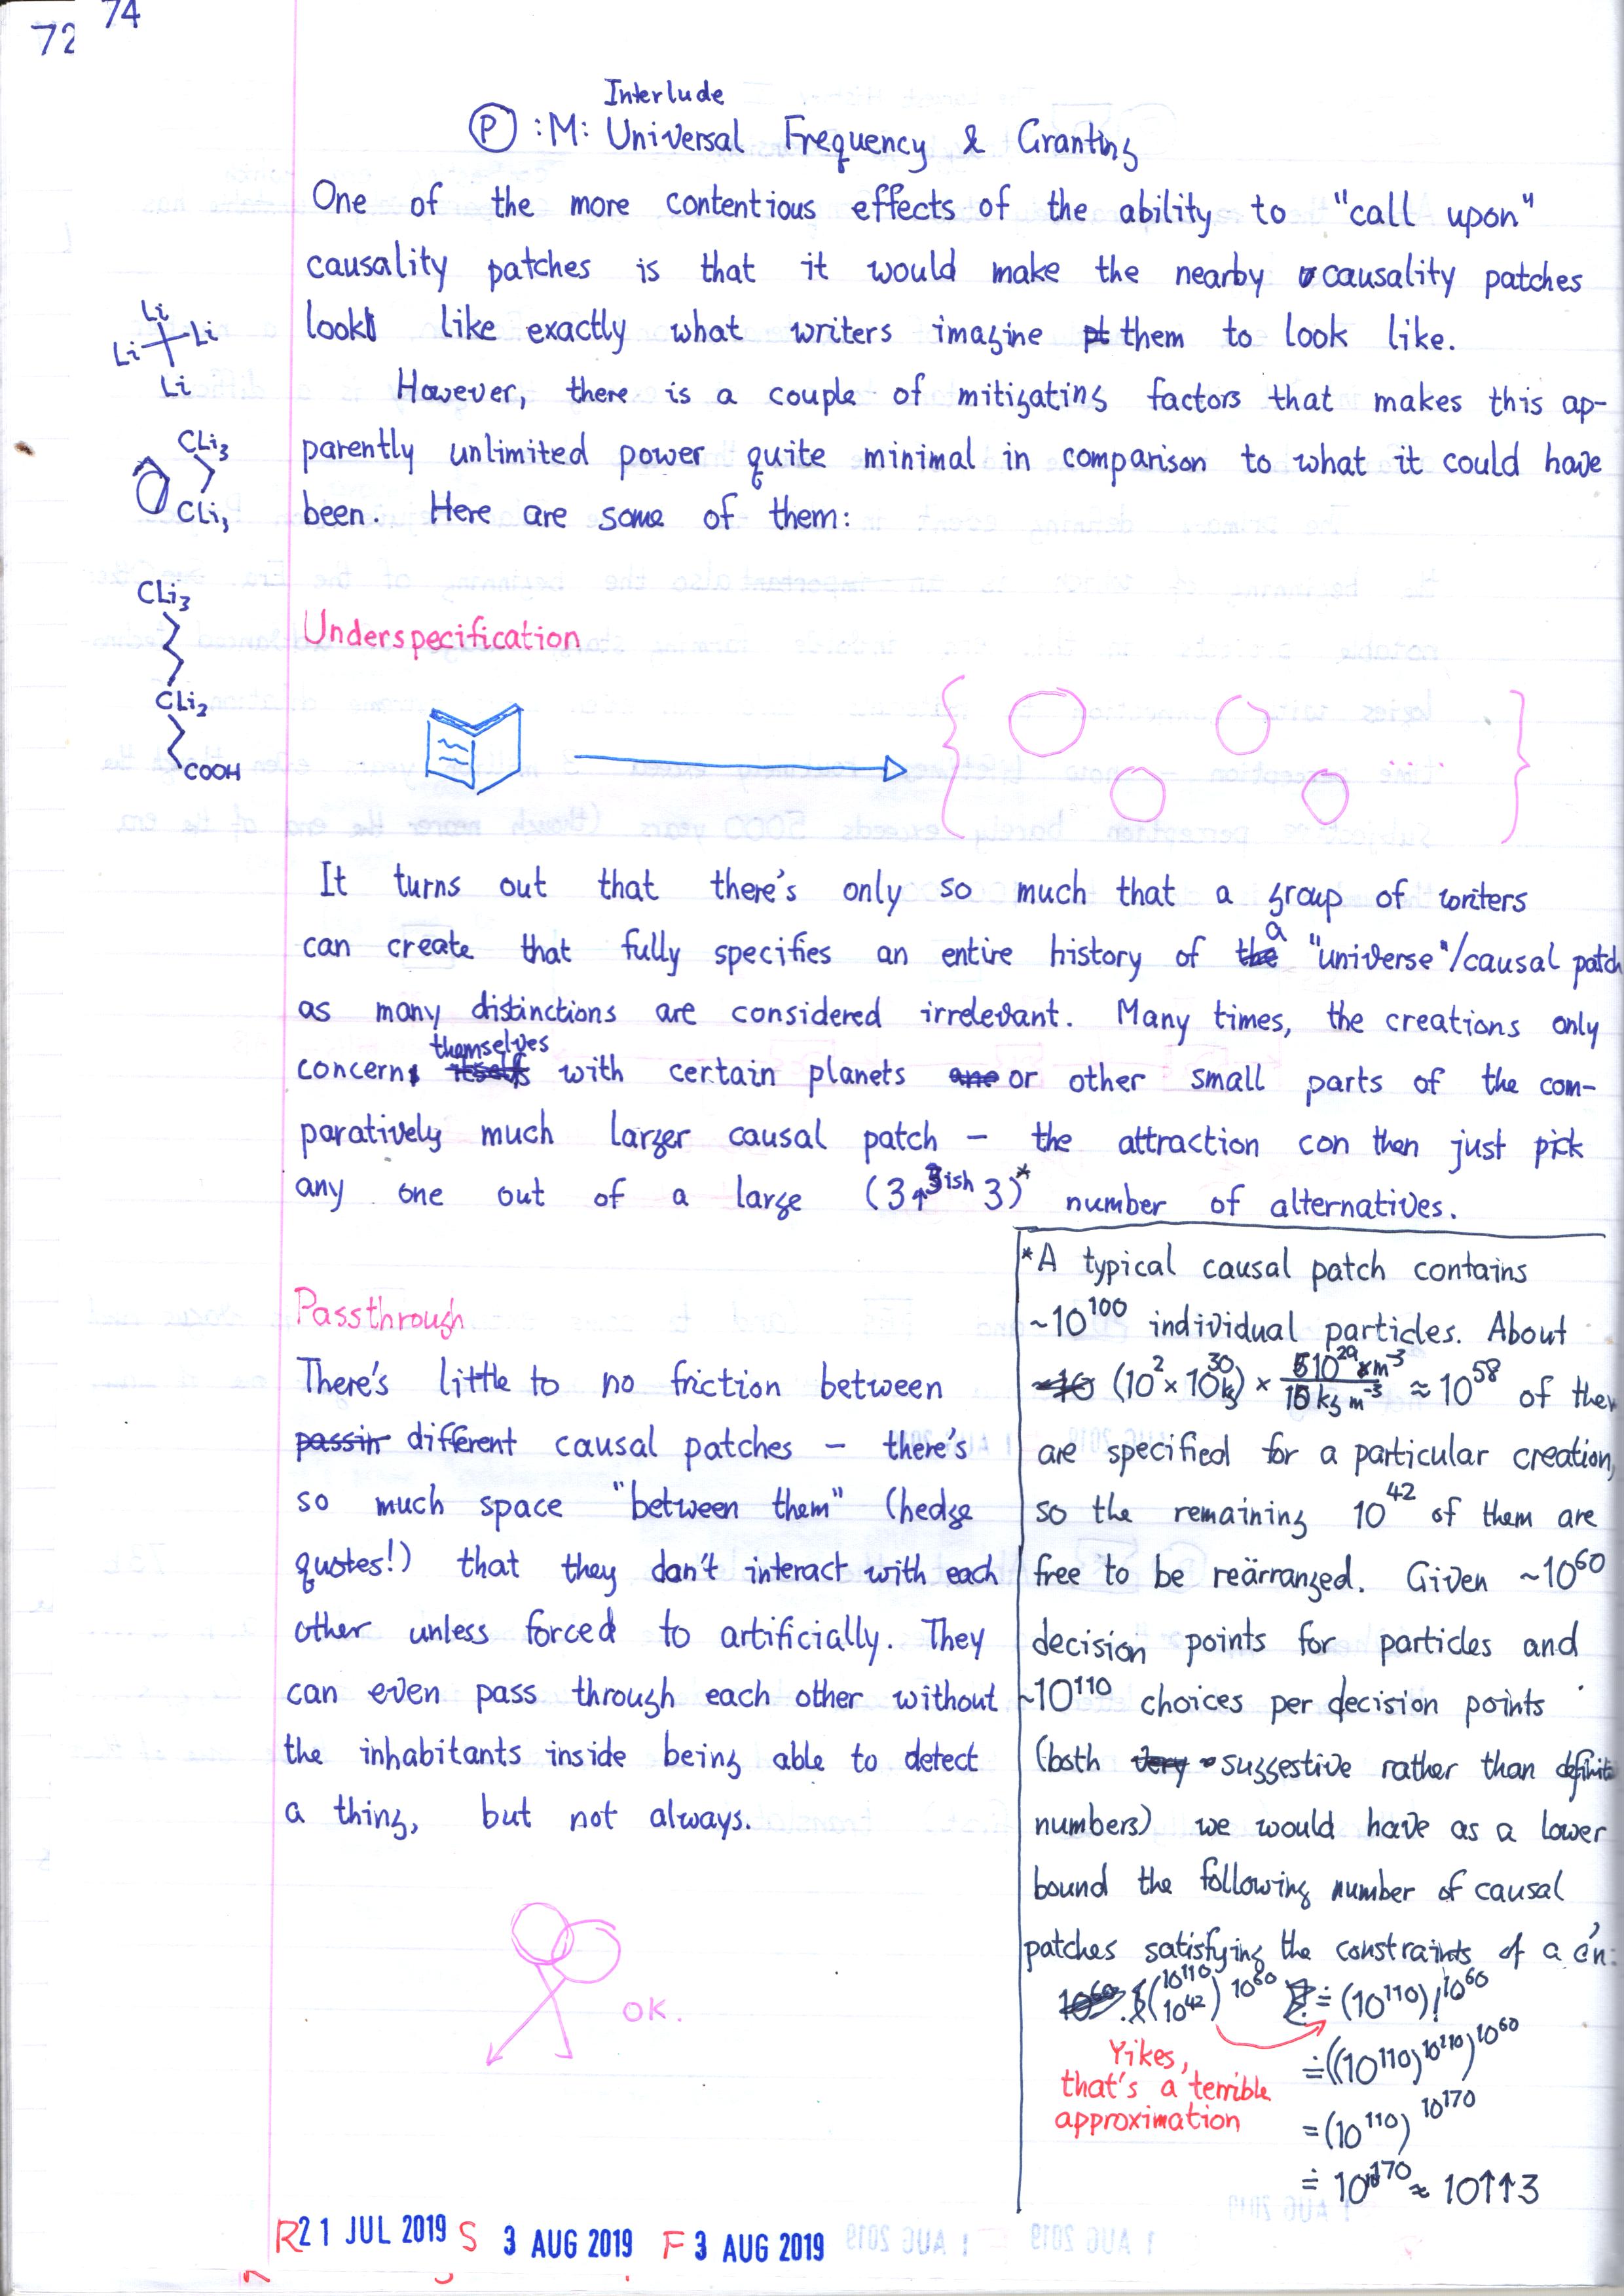 74
72
Interlude
Ⓟ :M: Universal Frequency & Granting
One of the more contentious effects of the ability to "call upon"
causality patches is that it would make the nearby causality patches
look like exactly what writers imagine them to look like.
However, there is a couple of mitigating factors that makes this ap-
parently unlimited power quite minimal in comparison to what it could have
been. Here are some of them:
Li
Li Li
Li
CLi3
CLi3
CLi3
CLi2
COOH
Underspecification
It turns out that there's only so much that a group of writers
can create that fully specifies an entire history of a "universe"/causal patch
as many distinctions are considered irrelevant. Many times, the creations only
concern themselves with certain planets or other small parts of the com-
paratively much larger causal patch – the attraction can then just pick
any one out of a large (3↑^3ish 3)* number of alternatives.
Passthrough
There's little to no friction between
different causal patches – there's
so much space "between them" (hedge
quotes!) that they don't interact with each
other unless forced to artificially. They
can even pass through each other without
the inhabitants inside being able to detect
a thing, but not always.
OK.
*A typical causal patch contains
~10^100 individual particles. About
(10^2 × 10^30 kg) × 5 10^29 m^-3 / 15 kg m^-3 ≈ 10^58 of them
are specified for a particular creation,
so the remaining 10^42 of them are
free to be reärranged. Given ~10^60
decision points for particles and
~10^110 choices per decision points
(both suggestive rather than definite
numbers) we would have as a lower
bound the following number of causal
patches satisfying the constraints of a c'n:
(10^110 10^42)^10^60 ≐ (10^110)!^10^60
≐ ((10^110)^10^110)^10^60
= (10^110)^10^170
≐ 10^10^170 ≈ 10↑↑3
Yikes,
that's a terrible
approximation
R 21 JUL 2019 S 3 AUG 2019 F 3 AUG 2019